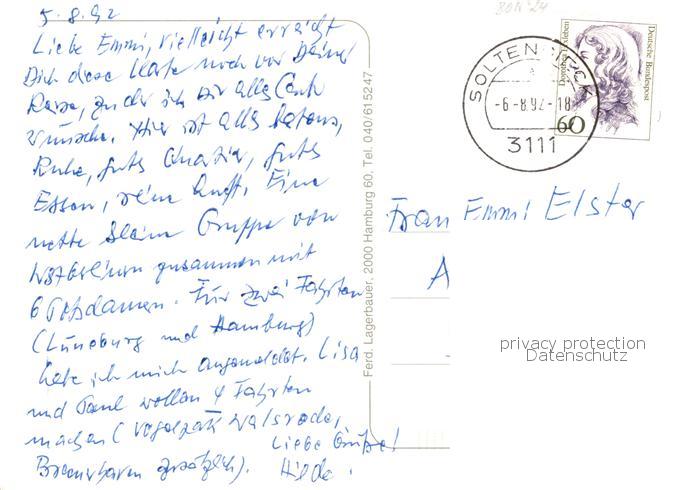 5.8.92
Liebe Emmi, vielleicht erreicht
Dich diese Karte noch vor Deiner
Reise, zu der ich Dir alles Gute
wünsche. Hier ist alles bestens,
Ruhe, gutes Quartier, gutes
Essen, reine Luft. Eine
nette kleine Gruppe von
Westberlinern zusammen mit
6 Potsdamern. Für zwei Fahrten
(Lüneburg und Hamburg)
habe ich mich angemeldet. Lisa
und Paul wollen 4 Fahrten
machen (Vogelpark Walsrode,
Bremerhaven zusätzlich).
Liebe Grüße!
Hilde.
Ferd. Lagerbauer, 2000 Hamburg 60, Tel. 040/615247
SOLTENDIECK
-6.-8.92.-18
3111
Deutsche Bundespost
60
Frau Emmi Elster
A
privacy protection
Datenschutz